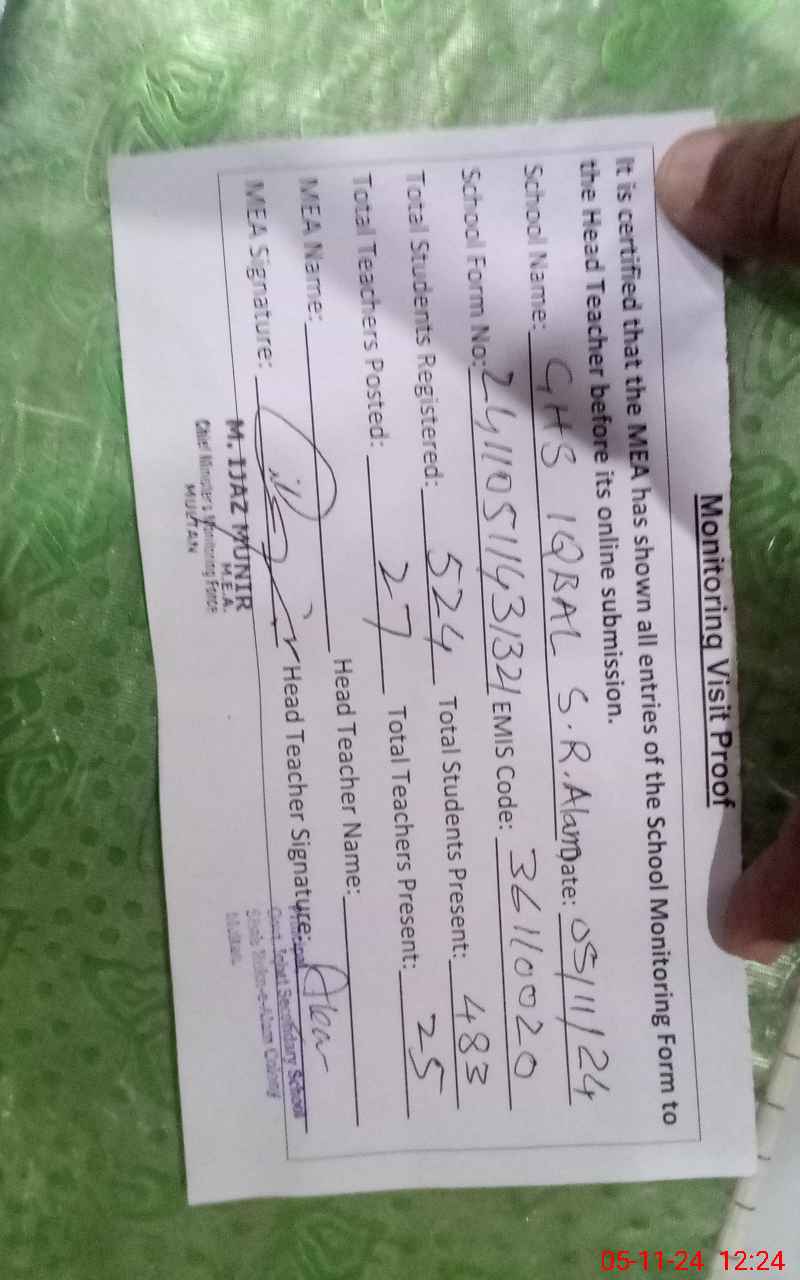 Monitoring Visit Proof
It is certified that the MEA has shown all entries of the School Monitoring Form to
the Head Teacher before its online submission.
School Name: GHS IQBAL S.R.Alam Date: 05/11/24
School Form No: EMIS Code: 36110020
Total Students Registered: 524 Total Students Present: 483
Total Teachers Posted: 27 Total Teachers Present: 25
MEA Name: Head Teacher Name:
MEA Signature: Head Teacher Signature:
M. IJAZ MUNIR
M.E.A.
Chief Minister's Monitoring Force
MULTAN
Secondary School
05-11-24 12:24